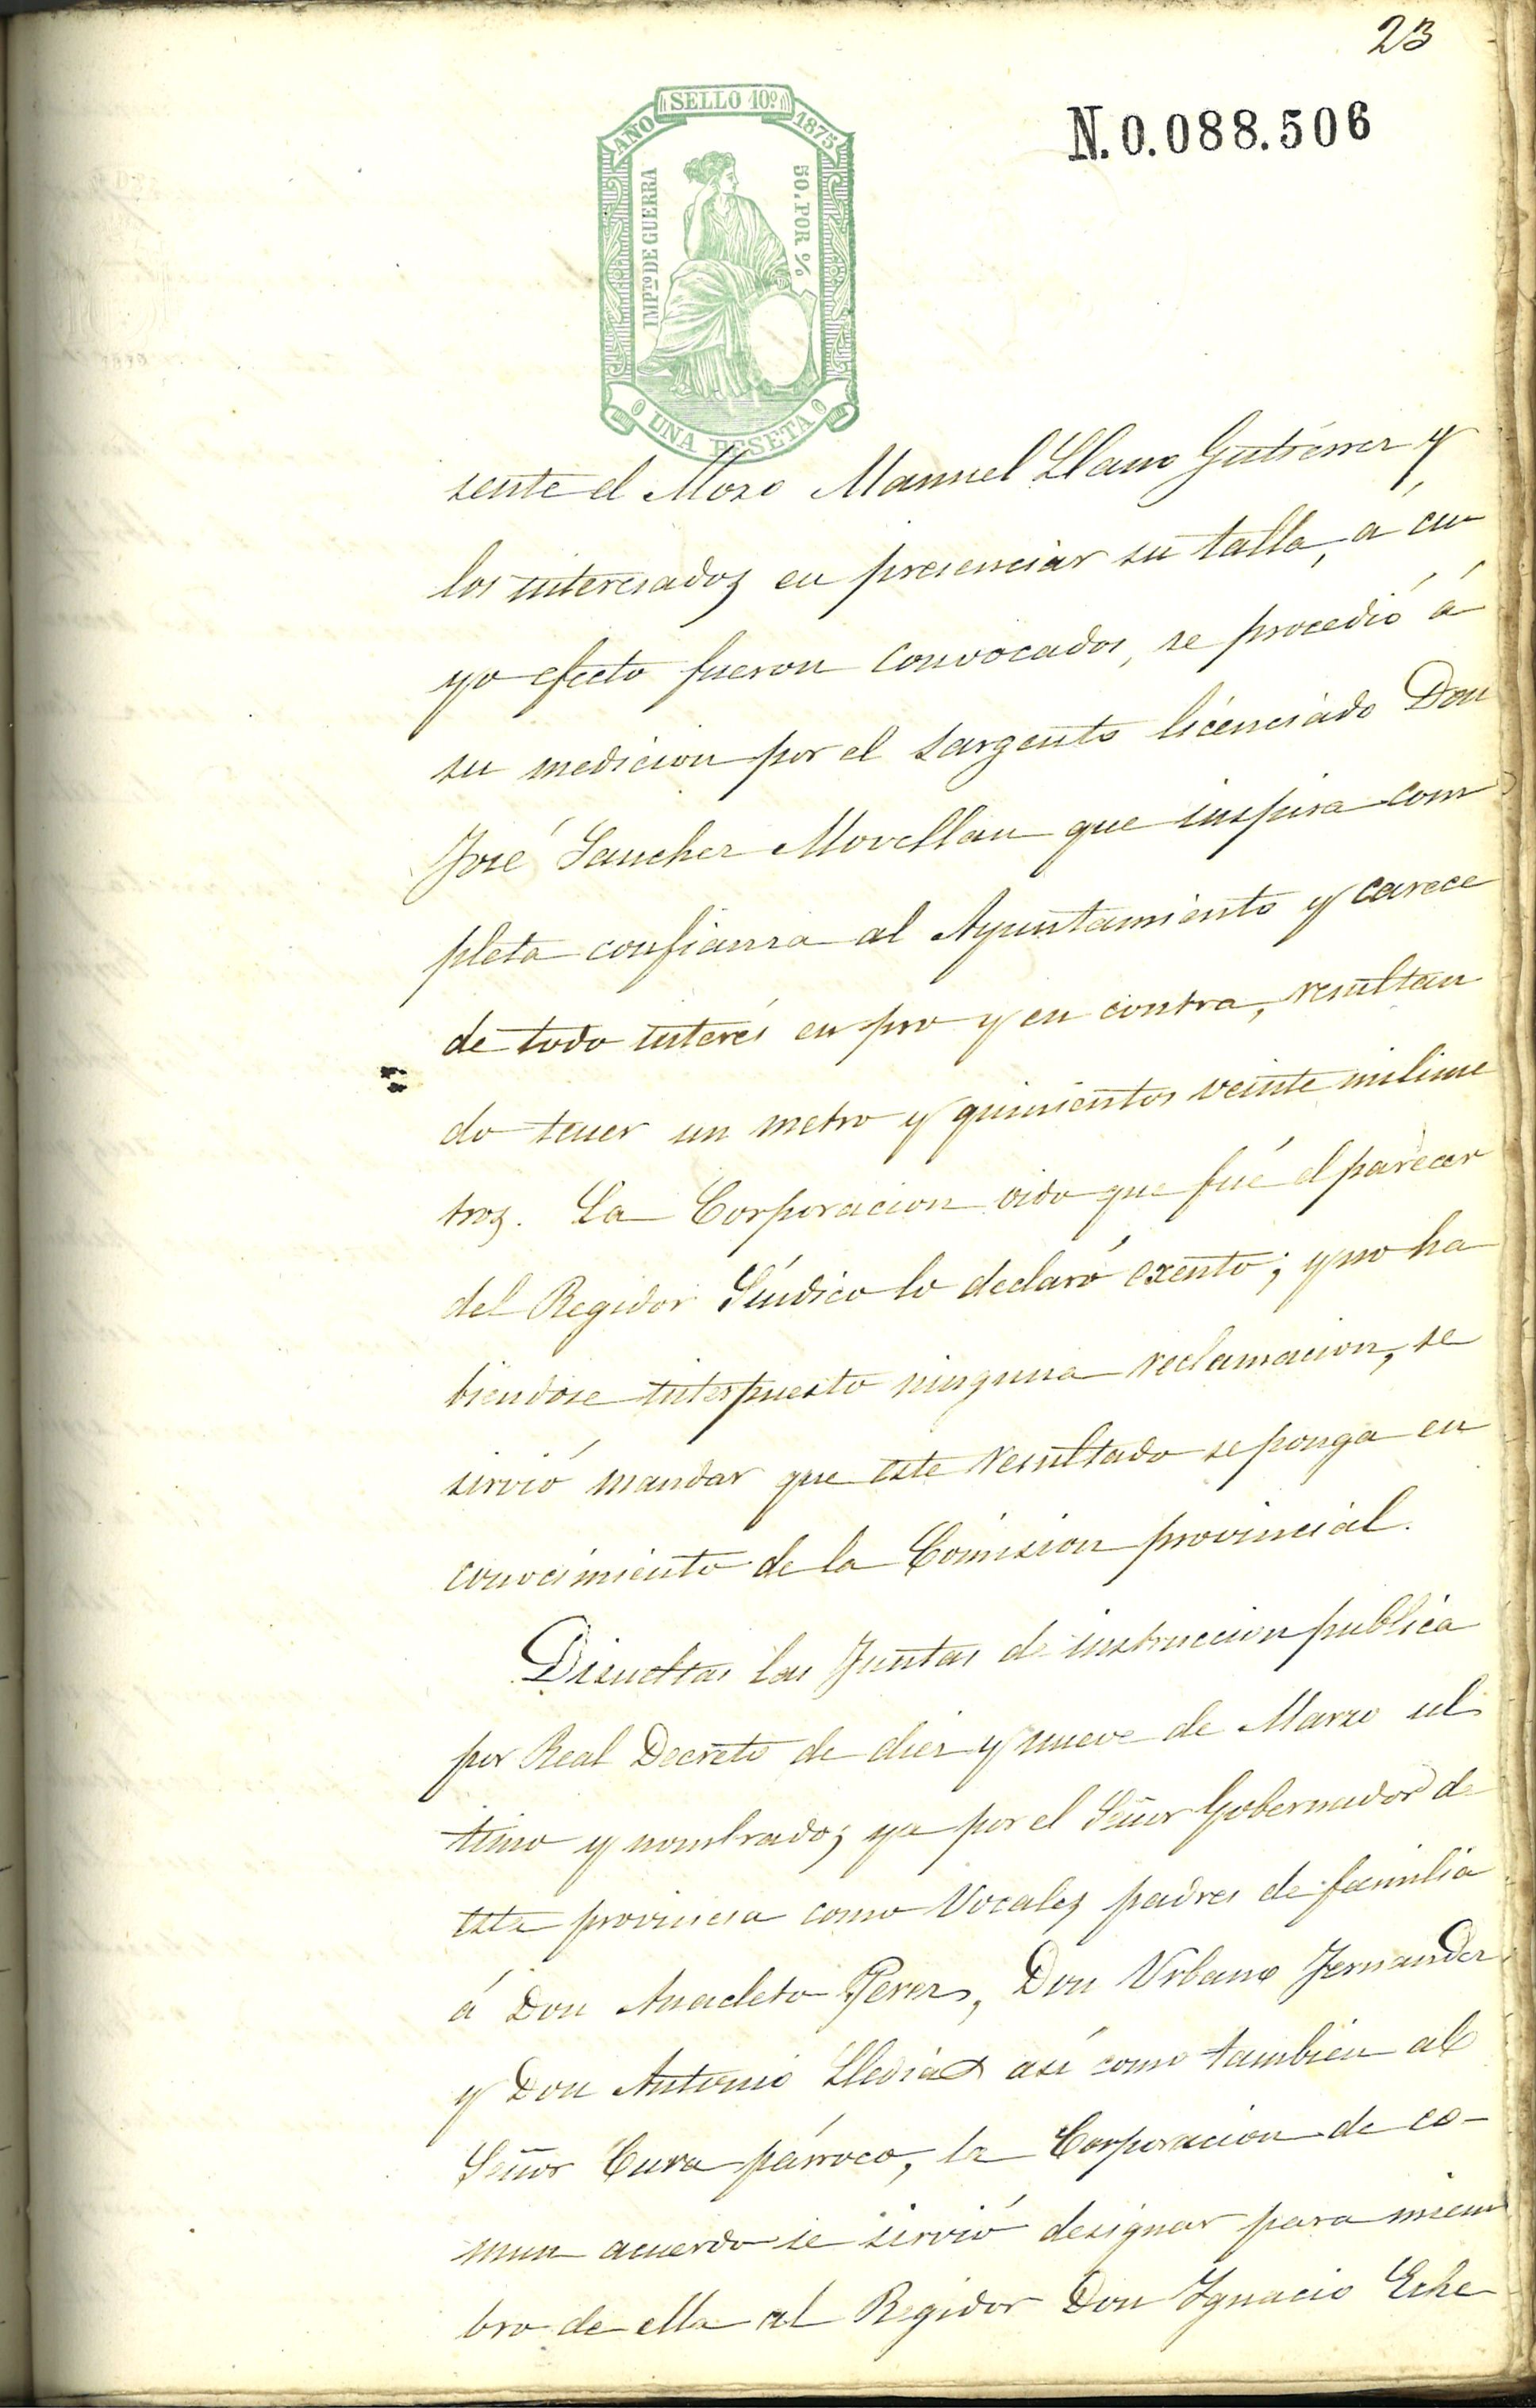 23
N.0.088.506
SELLO 10º
AÑO 1875
IMPTO DE GUERRA
50, POR %
UNA PESETA
sente el Mozo Manuel Llano Gutierrez y
los interesados en presenciar su talla, á cu
yo efecto fueron convocados, se procedió á
su medicion por el sargento licenciado Don
José Sanchez Movellan que inspira com
pleta confianza al Ayuntamiento y carece
de todo interés en pro y en contra, resultan
do tener un metro y quinientos veinte milime
tros. La Corporacion oido que fué el parecer
del Regidor Síndico lo declaró exento; y no ha
biendose interpuesto ninguna reclamacion, se
sirvió mandar que este resultado se ponga en
conocimiento de la Comision provincial.
Disueltas las Juntas de instruccion publica
por Real Decreto de diez y nueve de Marzo ul
timo y nombrados ya por el Señor Gobernador de
esta provincia como Vocales padres de familia
á Don Anacleto Perez, Don Urbano Fernandez
y Don Antonio así como tambien al
Señor Cura párroco, la Corporacion de co-
mun acuerdo se sirvió designar para miem
bro de ella al Regidor Don Ignacio Eche